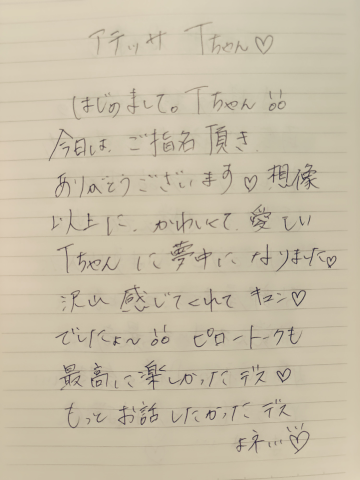 アテッサ Tちゃん♡
はじめまして。Tちゃん
今日は、ご指名頂き
ありがとうございます♡ 想像
以上に、かわいくて、愛しい
Tちゃんに夢中になりました♡
沢山 感じてくれて キュン♡
でしたょ〜 ピロートークも
最高に楽しかったデス♡
もっとお話したかったデス
ょネ…♡